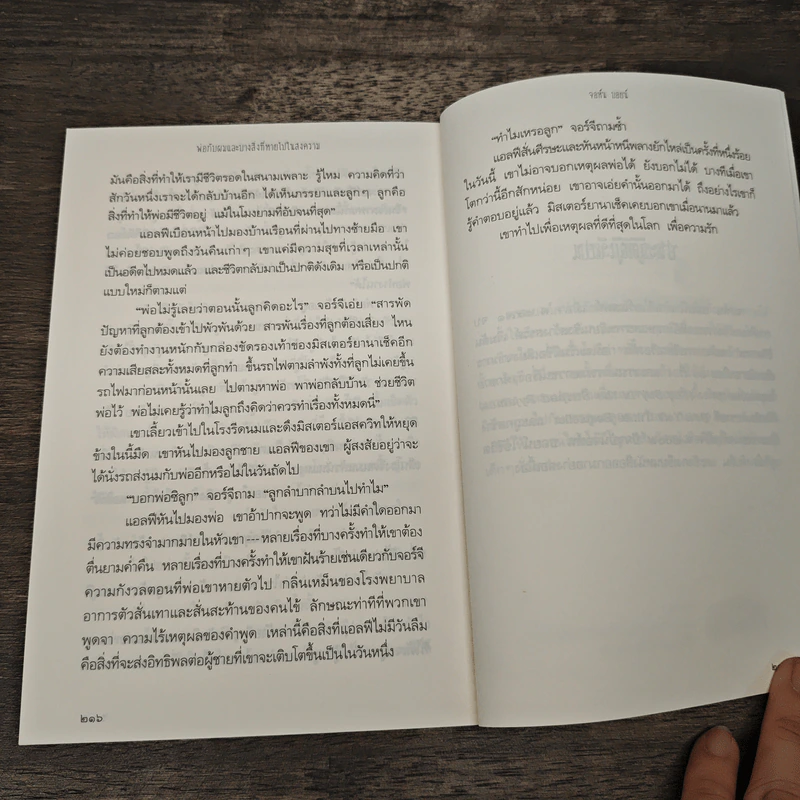 พ่อกับผมและบางสิ่งที่หายไปในสงคราม
มันคือสิ่งที่ทำให้เรามีชีวิตรอดในสนามเพลาะ รู้ไหม ความคิดที่ว่า
สักวันหนึ่งเราจะได้กลับบ้านอีก ได้เห็นภรรยาและลูกๆ ลูกคือ
สิ่งที่ทำให้พ่อมีชีวิตอยู่ แม้ในโมงยามที่อับจนที่สุด”
แอลฟีเบือนหน้าไปมองบ้านเรือนที่ผ่านไปทางซ้ายมือ เขา
ไม่ค่อยชอบพูดถึงวันคืนเก่าๆ เขาแค่มีความสุขที่เวลาเหล่านั้น
เป็นอดีตไปหมดแล้ว และชีวิตกลับมาเป็นปกติดังเดิม หรือเป็นปกติ
แบบใหม่ก็ตามแต่
“พ่อไม่รู้เลยว่าตอนนั้นลูกคิดอะไร” จอร์จีเอ่ย “สารพัด
ปัญหาที่ลูกต้องเข้าไปพัวพันด้วย สารพันเรื่องที่ลูกต้องเสี่ยง ไหน
ยังต้องทำงานหนักกับกล่องขัดรองเท้าของมิสเตอร์ยานาเช็คอีก
ความเสียสละทั้งหมดที่ลูกทำ ขึ้นรถไฟตามลำพังทั้งที่ลูกไม่เคยขึ้น
รถไฟมาก่อนหน้านั้นเลย ไปตามหาพ่อ พาพ่อกลับบ้าน ช่วยชีวิต
พ่อไว้ พ่อไม่เคยรู้ว่าทำไมลูกถึงคิดว่าควรทำเรื่องทั้งหมดนี่”
เขาเลี้ยวเข้าไปในโรงรีดนมและดึงมิสเตอร์แอสควิทให้หยุด
ข้างในนี้มืด เขาหันไปมองลูกชาย แอลฟีของเขา ผู้สงสัยอยู่ว่าจะ
ได้นั่งรถส่งนมกับพ่ออีกหรือไม่ในวันถัดไป
“บอกพ่อซิลูก” จอร์จีถาม “ลูกลำบากลำบนไปทำไม”
แอลฟีหันไปมองพ่อ เขาอ้าปากจะพูด ทว่าไม่มีคำใดออกมา
มีความทรงจำมากมายในหัวเขา---หลายเรื่องที่บางครั้งทำให้เขาต้อง
ตื่นยามค่ำคืน หลายเรื่องที่บางครั้งทำให้เขาฝันร้ายเช่นเดียวกับจอร์จี
ความกังวลตอนที่พ่อเขาหายตัวไป กลิ่นเหม็นของโรงพยาบาล
อาการตัวสั่นเทาและสั่นสะท้านของคนไข้ ลักษณะท่าทีที่พวกเขา
พูดจา ความไร้เหตุผลของคำพูด เหล่านี้คือสิ่งที่แอลฟีไม่มีวันลืม
คือสิ่งที่จะส่งอิทธิพลต่อผู้ชายที่เขาจะเติบโตขึ้นเป็นในวันหนึ่ง
๒๑๖
จอห์น บอยน์
“ทำไมเหรอลูก” จอร์จีถามซ้ำ
แอลฟีสั่นศีรษะและหันหน้าหนีพลางยักไหล่เป็นครั้งที่หนึ่งร้อย
ในวันนี้ เขาไม่อาจบอกเหตุผลพ่อได้ ยังบอกไม่ได้ บางทีเมื่อเขา
โตกว่านี้อีกสักหน่อย เขาอาจเอ่ยคำนั้นออกมาได้ ถึงอย่างไรเขาก็
รู้คำตอบอยู่แล้ว มิสเตอร์ยานาเช็คเคยบอกเขาเมื่อนานมาแล้ว
เขาทำไปเพื่อเหตุผลที่ดีที่สุดในโลก เพื่อความรัก